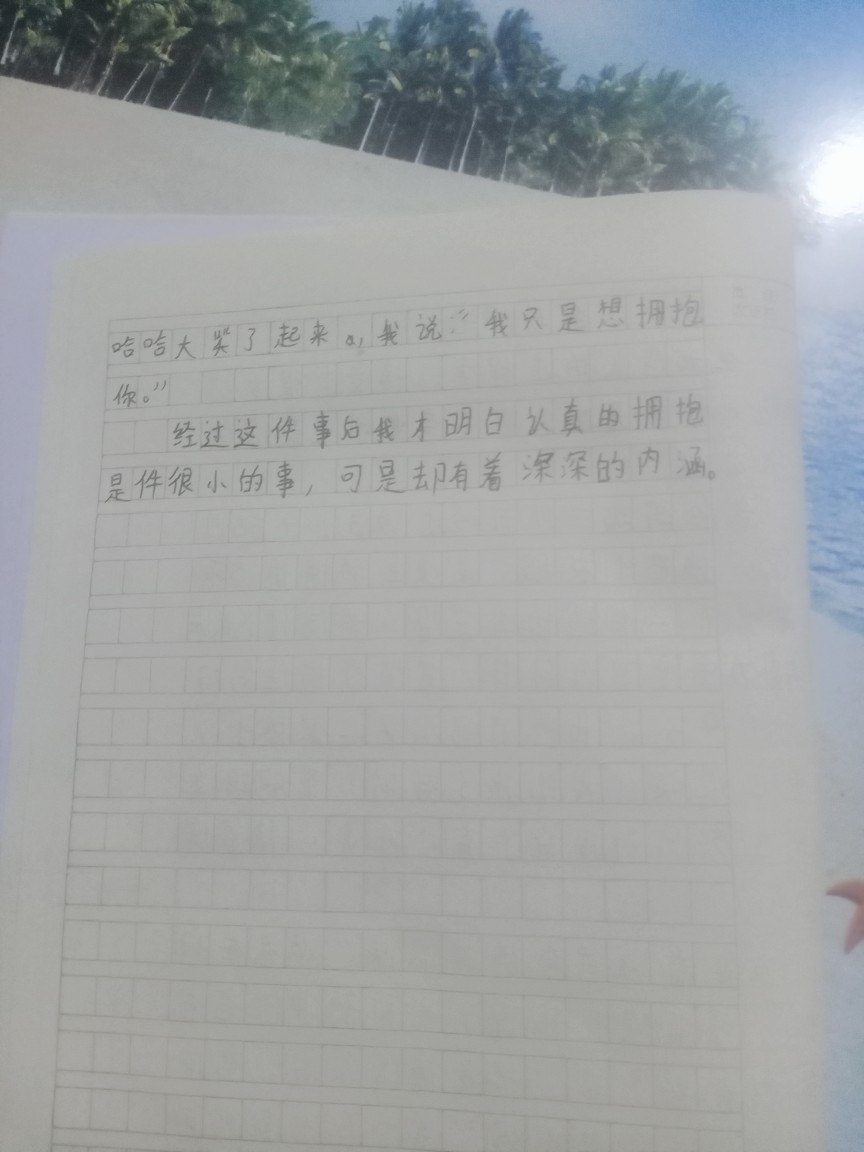 哈哈大笑了起来。,我说:“我只是想拥抱
你。”
经过这件事后我才明白认真的拥抱
是件很小的事,可是却有着深深的内涵。